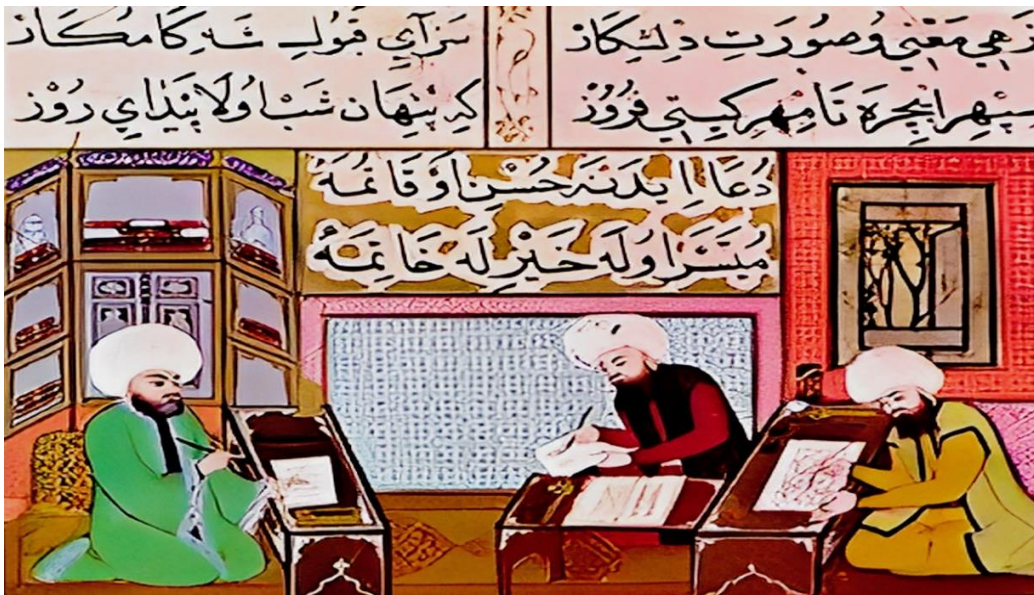 زهي معني وصورت دلشكار سزاي قبول شه كامكار
سپهر ايچره تا مهر كيتي فروز كه پنهان شب اولا پيداي روز
دعا ايدنه حسن اوقاتمه
ميسر اوله خير له خاتمه